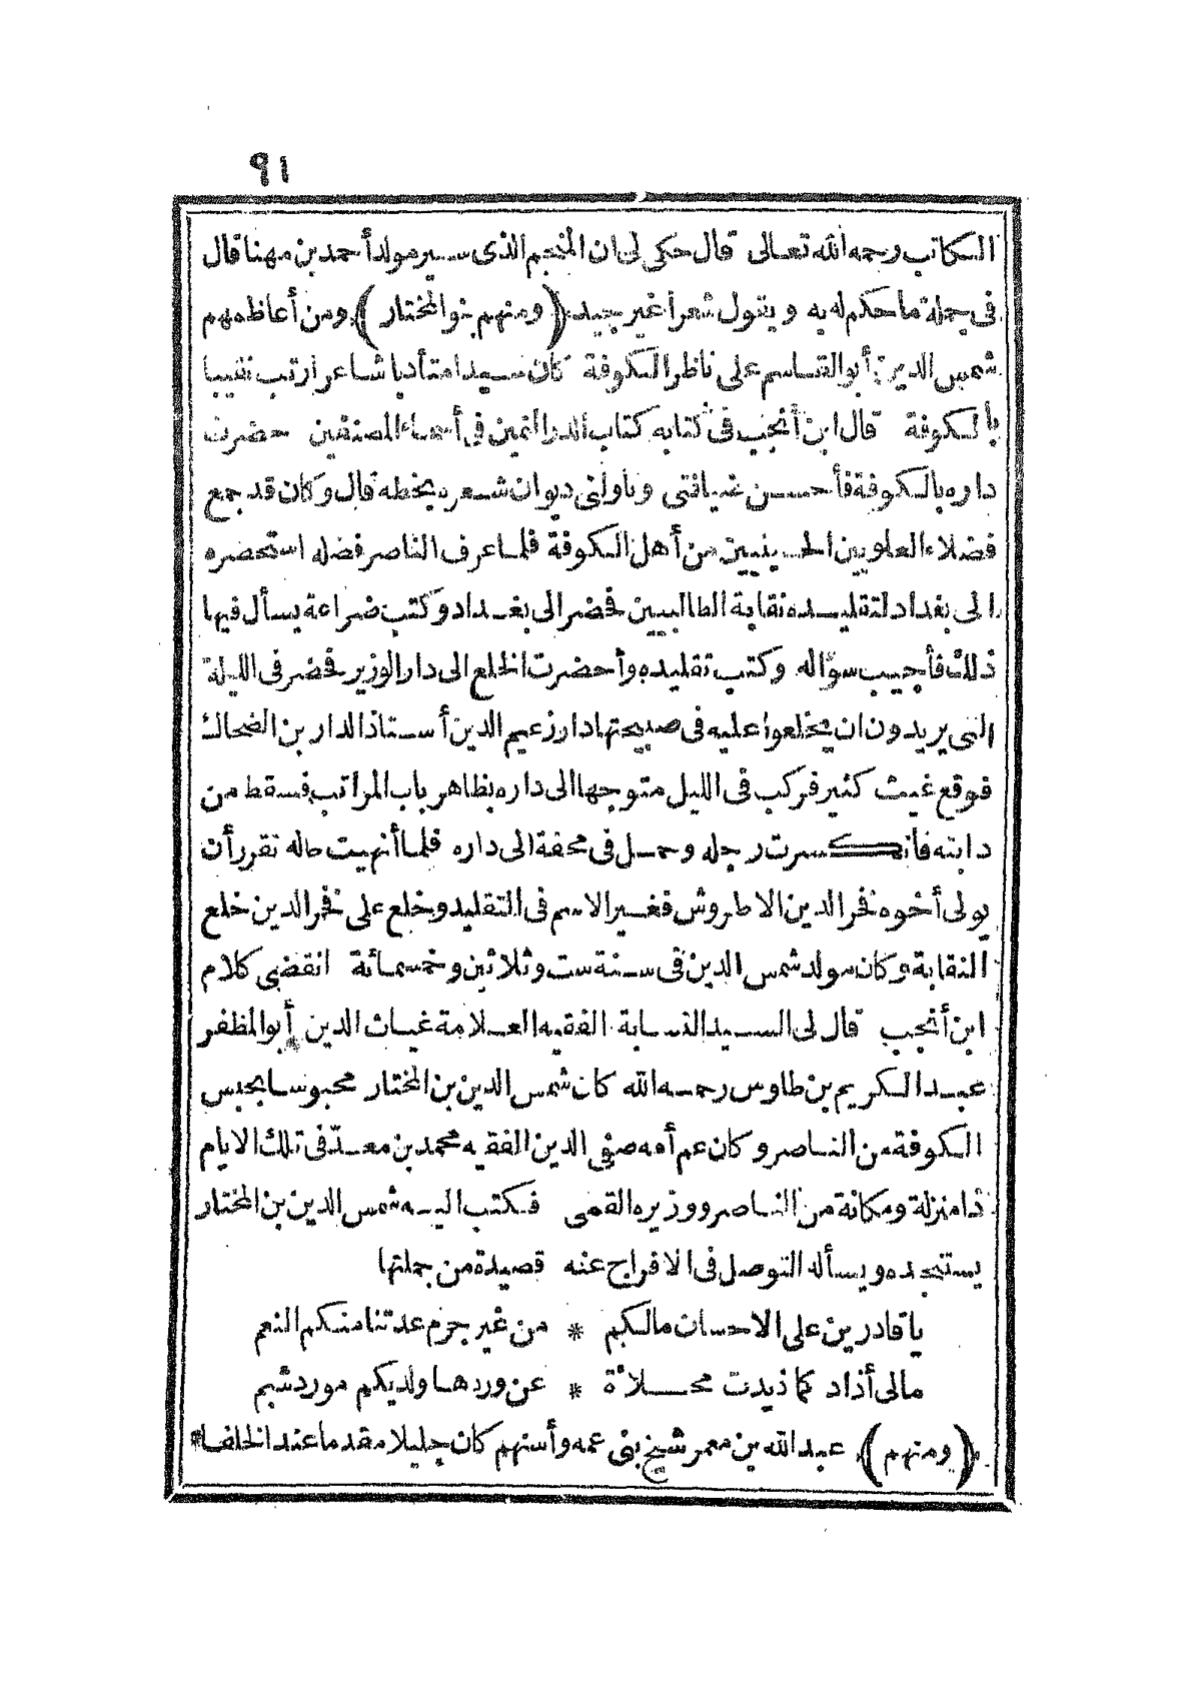 ٩١
الكاتب رحمه الله تعالى قال حكى لى ان المنجم الذى سير مولد أحمد بن مهنا قال
فى جملة ما حكم له به ويقول شعرا غير جيد (ومنهم بنو المختار) ومن أعاظمهم
شمس الدين أبو القاسم على ناظر الكوفة كان سيدا متأدبا شاعرا رتب نقيبا
بالكوفة قال ابن أنجب فى كتابه كتاب الدر الثمين فى أسماء المصنفين حضرت
داره بالكوفة فأحسن ضيافتى وناولنى ديوان شعره بخطه قال وكان قد جمع
فضلاء العلويين الحسينيين من أهل الكوفة فلما عرف الناصر فضله استحضره
الى بغداد لتقليده نقابة الطالبيين فحضر الى بغداد وكتب ضراعة يسأل فيها
ذلك فأجيب سؤاله وكتب تقليده وأحضرت الخلع الى دار الوزير فحضر فى الليلة
التى يريدون ان يخلعوا عليه فى صبيحتها دار زعيم الدين أستاذ الدار بن الضحاك
فوقع غيث كثير فركب فى الليل متوجها الى داره بظاهر باب المراتب فسقط من
دابته فانكسرت رجله وحمل فى محفة الى داره فلما أنهيت حاله تقرر أن
يولى أخوه فخر الدين الاطروش فغير الاسم فى التقليد وخلع على فخر الدين خلع
النقابة وكان مولد شمس الدين فى سنة ست وثلاثين وخمسمائة انقضى كلام
ابن أنجب قال لى السيد النسابة الفقيه العلامة غياث الدين أبو المظفر
عبد الكريم بن طاوس رحمه الله كان شمس الدين بن المختار محبوسا بحبس
الكوفة من الناصر وكان عم أمه صفى الدين الفقيه محمد بن معدّ فى تلك الايام
ذا منزلة ومكانة من الناصر ووزيره القمى فكتب اليه شمس الدين بن المختار
يستنجده ويسأله التوصل فى الافراج عنه قصيدة من جملتها
يا قادرين على الاحسان مالكم * من غير جرم عدتنا منكم النعم
مالى أذاد كما ذيدت محلأة * عن وردها ولديكم مورد شبم
(ومنهم) عبد الله بن معمر شيخ بنى عمه وأسنهم كان جليلا مقدما عند الخلفاء